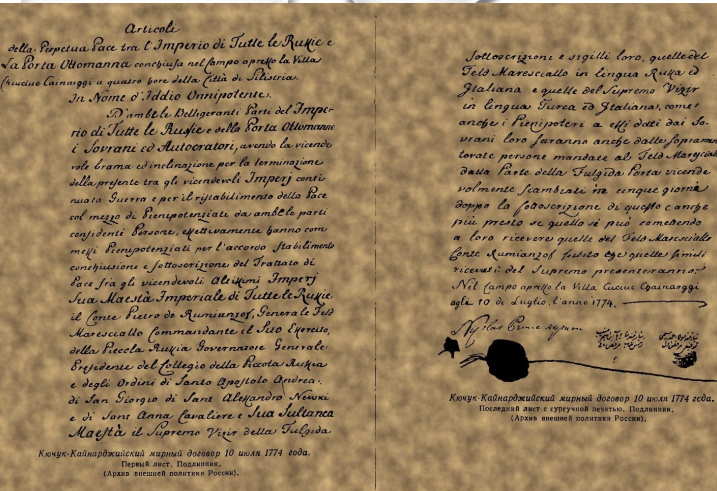 Articoli
della Perpetua Pace tra l'Imperio di Tutte le Rußie e
La Porta Ottomanna conchiusa nel Campo apreßo la Villa
Chiuciuc Cainarggi a quatro hore della Città di Silistria.
In Nome d'Iddio Onnipotente.
D'ambe le Belligeranti Parti del Impe-
rio di Tutte le Rußie e della Porta Ottomanna
i Sovrani ed Autocratori, avendo la vicende
vole brama ed inclinazione per la terminazione
della presente tra gli vicendevoli Imperj conti
nuata Guerra e per il ristabilimento della Pace
col mezzo di Pienipotenziati da ambe le parti
confidenti Persone, effettivamente hanno com
meßi Pienipotenziati per l'accordo stabilimento
conchiusione e sottoscrizione del Trattato di
Pace fra gli vicendevoli Altißimi Imperj
Sua Maestà Imperiale di Tutte le Rußie
il Conte Pietro de Rumianzof, Generale Feld
Maresciallo Commandante il Suo Esercito,
della Piccola Rußia Governatore Generale
Presidente del Collegio della Piccola Rußia
e degli Ordini di Santo Apostolo Andrea,
di San Giorgio di Sant Aleßandro Newski
e di Sant Anna Cavaliere e Sua Sultanea
Maestà il Supremo Vizir della Fulgida
Кючук-Кайнарджийский мирный договор 10 июля 1774 года.
Первый лист. Подлинник.
(Архив внешней политики России).
Sottoscrizione e sigilli loro, quelle del
Feld Maresciallo in lingua Rußa ed
Italiana e quelle del Supremo Vizir
in lingua Turca ed Italiana, come
anche i Pienipoteri a eßi datti dai So-
vrani loro saranno anche dalle sopramen
tovate persone mandate al Feld Maresciallo
dalla Parte della Fulgida Porta vicende
volmente scambiati in cinque giorni
doppo la sottoscrizione di questo e anche
più presto se quello si può
a loro ricevere quelle del Feld Maresciallo
Conte Rumianzof subito che quelle simili
ricevuti del Supremo presenteranno.
Nel Campo apreßo la Villa Ciuciuc Chainarggi
agli 10 de Luglio, l'anno 1774.
Кючук-Кайнарджийский мирный договор 10 июля 1774 года.
Последний лист с сургучной печатью. Подлинник.
(Архив внешней политики России).